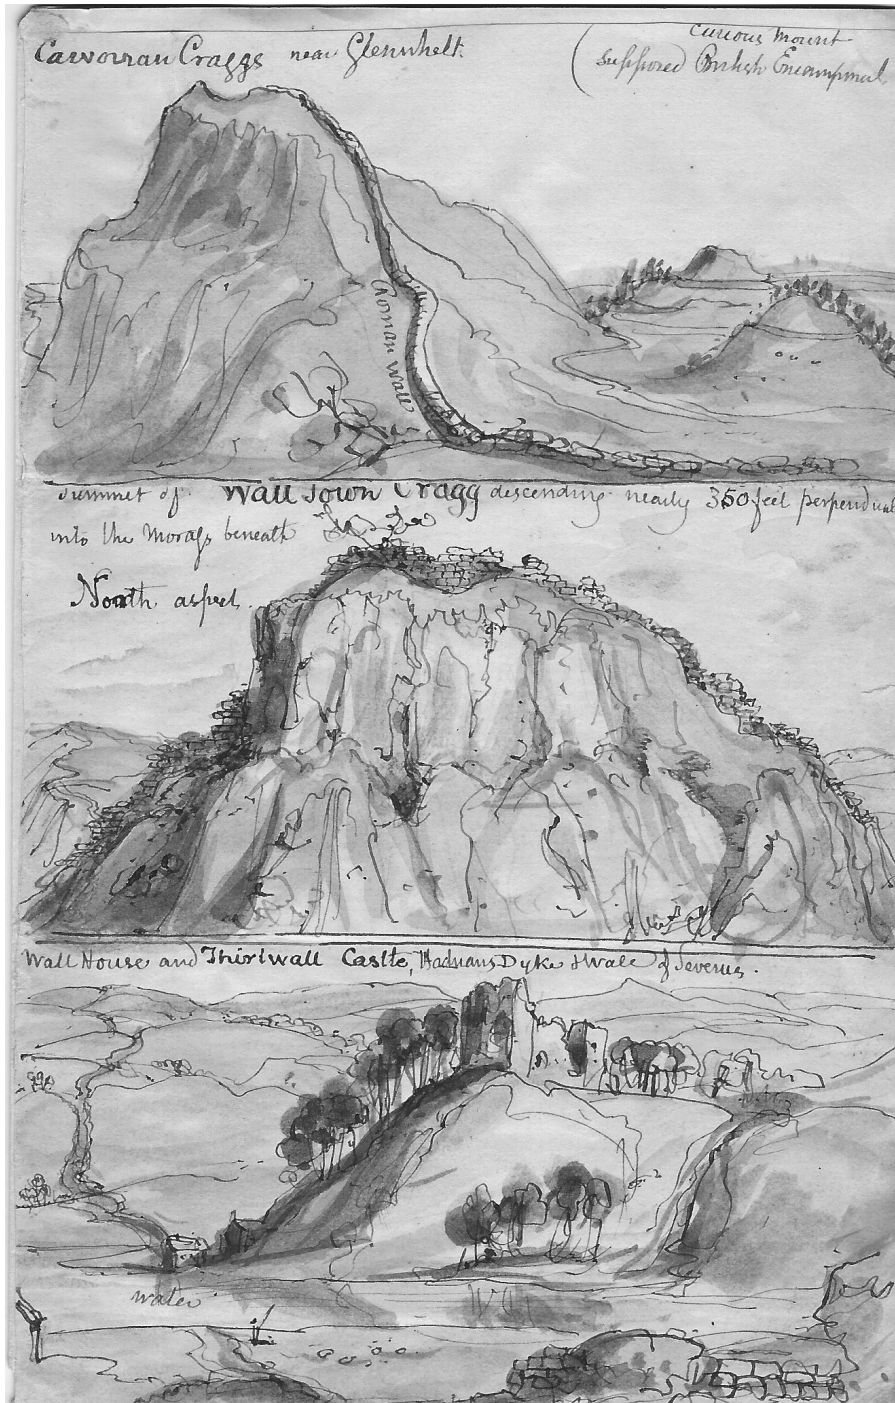 Carvorran Craggs near Glenwhelt.
(Curious Mount
supposed British Encampment
Roman Wall
Summet of Wall Town Cragg descending nearly 350 feet perpendicul
into the Morass beneath
North aspect.
Wall House and Thirlwall Castle, Hadrians Dyke & Wall of Severus.
water